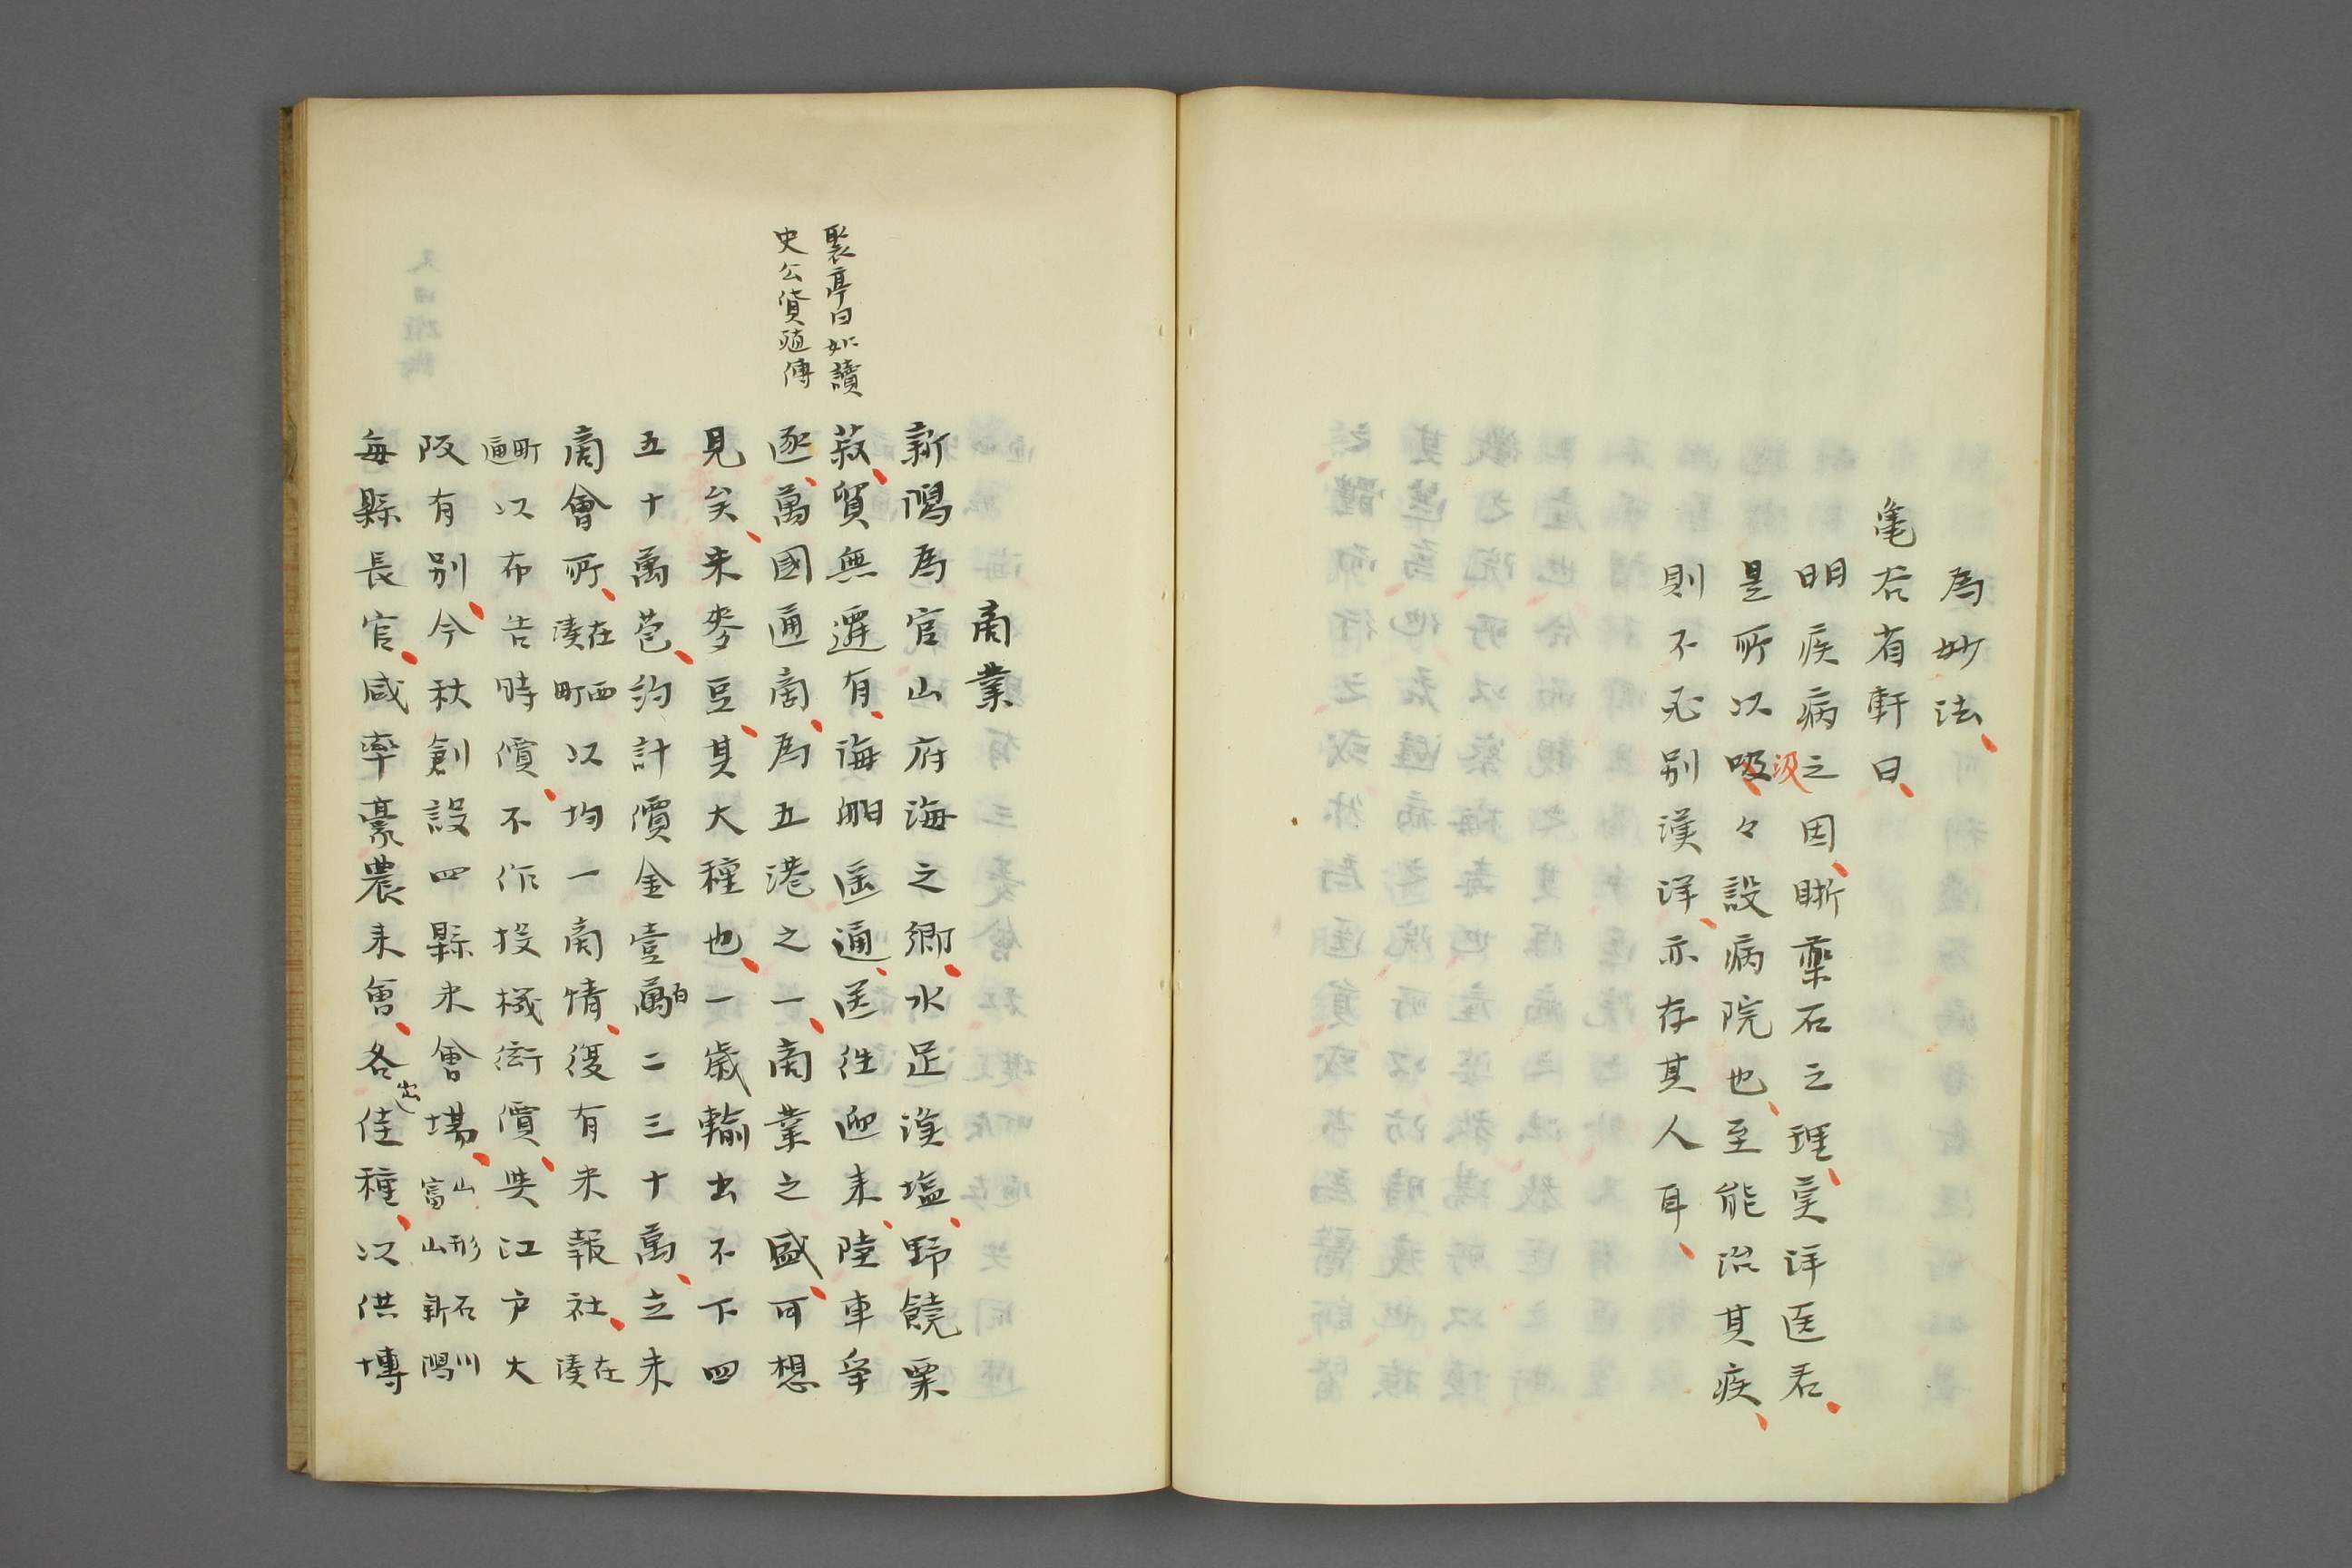 為妙法、
亀谷省軒曰、
明疾病之因、晣藥石之理、莫洋医若、
是所以吸汲々設病院也、至能治其疾、
則不必別漢洋、亦存其人耳、
商業
新潟為官山府海之鄉、水足漁塩、野饒粟
菽、貿無遷有、海舶遥通、送往迎来、陸車爭
逐、萬國通商、為五港之一、商業之盛、可想
見矣、米麥豆、其大種也、一歲輸出不下四
五十萬苞、約計價金壹百萬二三十萬、立米
商會所、在西湊町以均一商情、復有米報社、在湊
町通以布告時價、不作投機衒價、與江戸大
阪有別、今秋創設四縣米會場、山形石川富山新潟
每縣長官、咸率豪農来會、各出佳種、以供博
褧亭曰如讀
史公貨殖傳